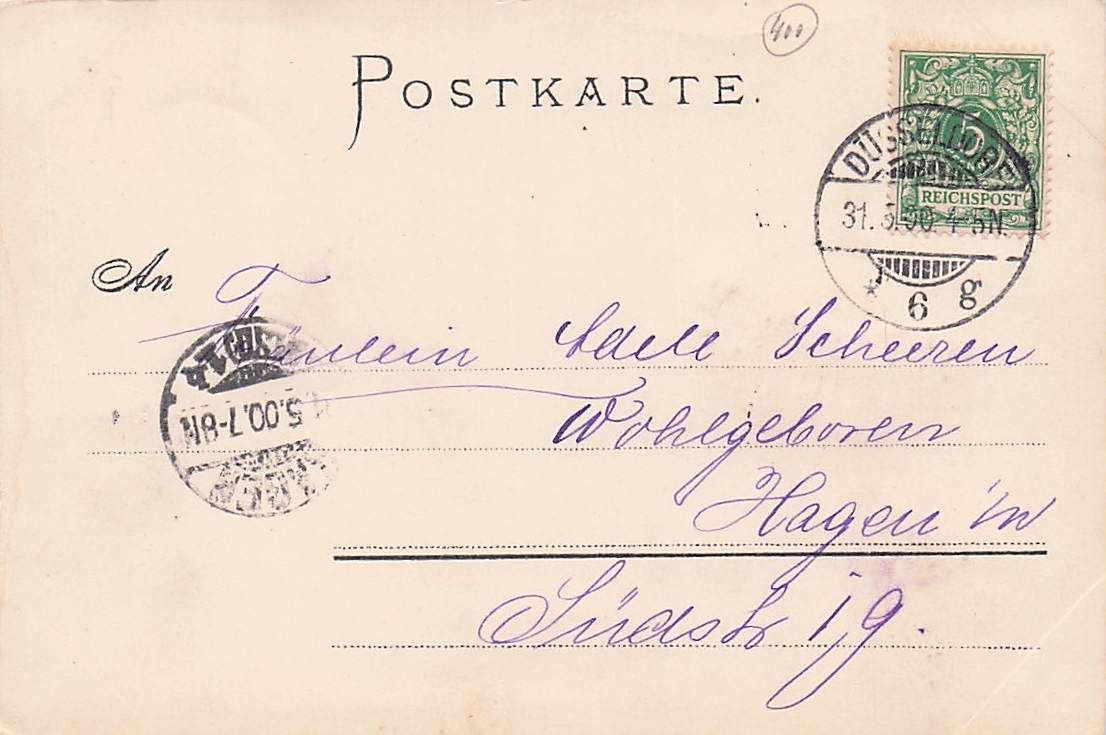 400
POSTKARTE.
5
REICHSPOST
DÜSSELDORF
31. 5.00. 4-5N.
* 6 g
An
Fräulein Adele Scheeren
Wohlgeboren
Hagen i/W
5.00.7-8N
HAGEN
Südstr 19.